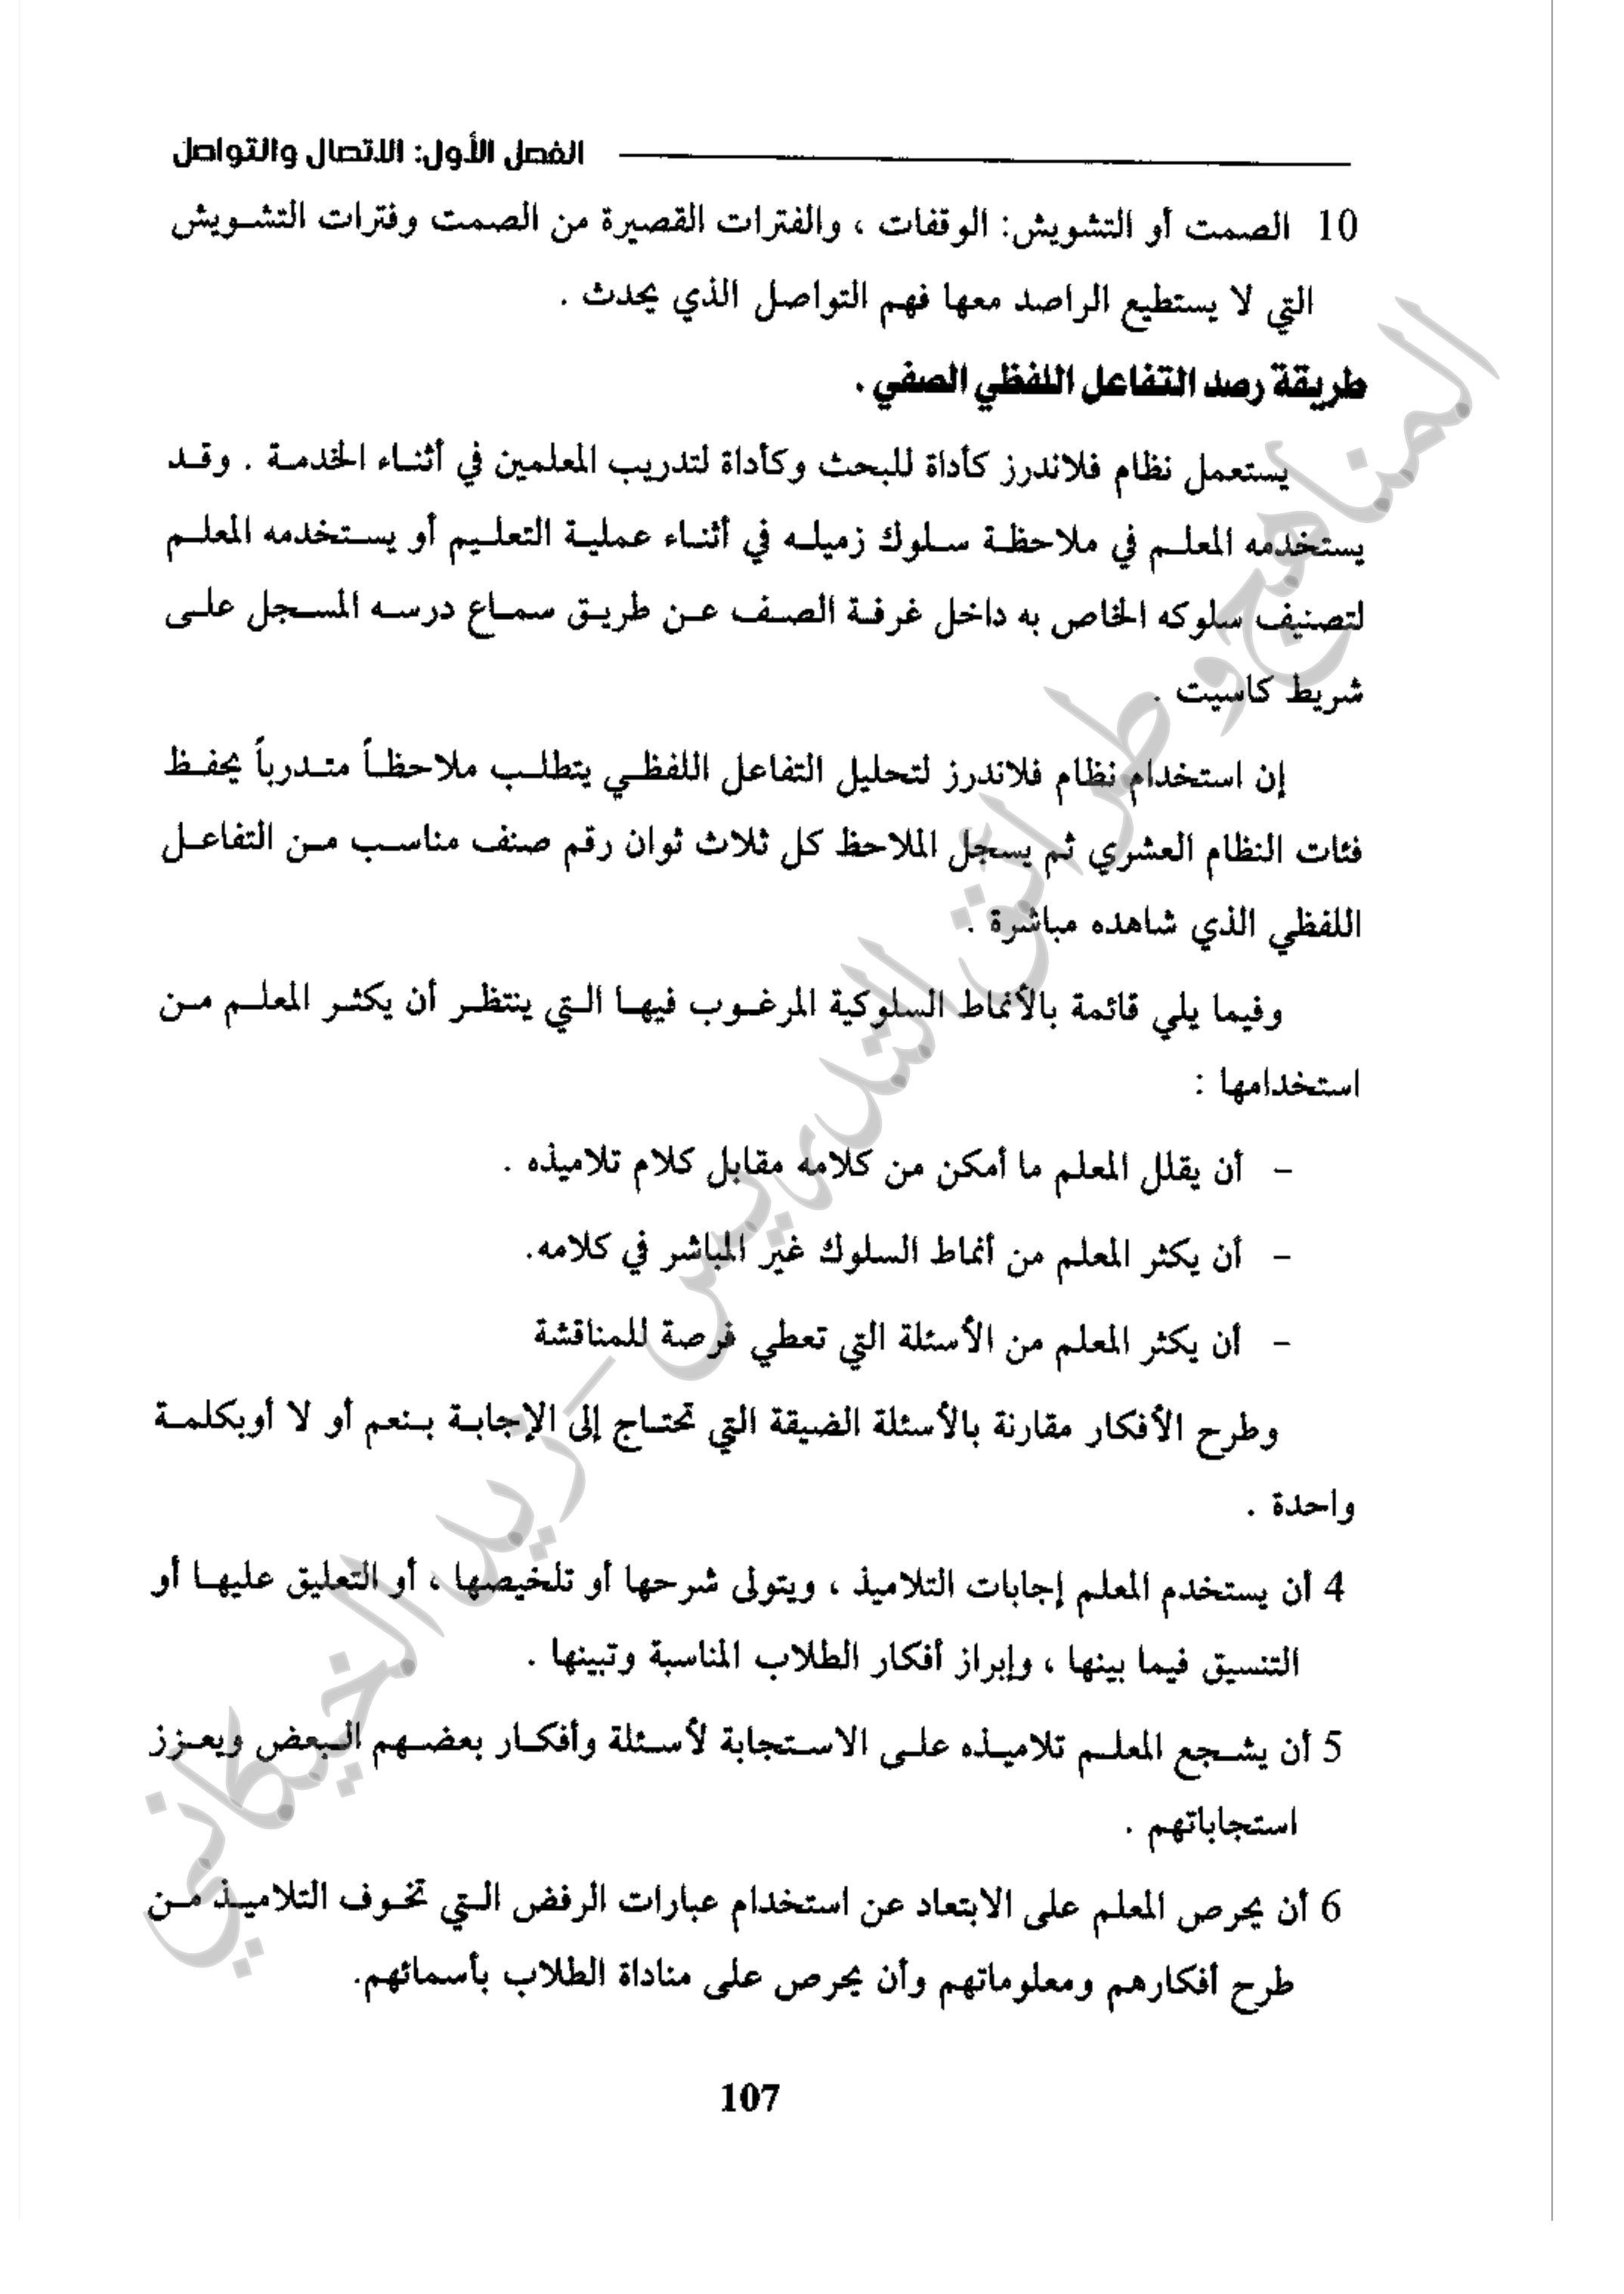 الفصل الأول: الاتصال والتواصل
10 الصمت أو التشويش: الوقفات ، والفترات القصيرة من الصمت وفترات التشويش
التي لا يستطيع الراصد معها فهم التواصل الذي يحدث .
طريقة رصد التفاعل اللفظي الصفي .
يستعمل نظام فلاندرز كأداة للبحث وكأداة لتدريب المعلمين في أثناء الخدمة . وقد
يستخدمه المعلم في ملاحظة سلوك زميله في أثناء عملية التعليم أو يستخدمه المعلم
لتصنيف سلوكه الخاص به داخل غرفة الصف عن طريق سماع درسه المسجل على
شريط كاسيت .
إن استخدام نظام فلاندرز لتحليل التفاعل اللفظي يتطلب ملاحظاً متدرباً يحفظ
فئات النظام العشري ثم يسجل الملاحظ كل ثلاث ثوان رقم صنف مناسب من التفاعل
اللفظي الذي شاهده مباشرة .
وفيما يلي قائمة بالأنماط السلوكية المرغوب فيها التي ينتظر أن يكثر المعلم من
استخدامها :
– أن يقلل المعلم ما أمكن من كلامه مقابل كلام تلاميذه .
– أن يكثر المعلم من أنماط السلوك غير المباشر في كلامه.
– أن يكثر المعلم من الأسئلة التي تعطي فرصة للمناقشة
وطرح الأفكار مقارنة بالأسئلة الضيقة التي تحتاج إلى الإجابة بنعم أو لا أوبكلمة
واحدة .
4 أن يستخدم المعلم إجابات التلاميذ ، ويتولى شرحها أو تلخيصها ، أو التعليق عليها أو
التنسيق فيما بينها ، وإبراز أفكار الطلاب المناسبة وتبينها .
5 أن يشجع المعلم تلاميذه على الاستجابة لأسئلة وأفكار بعضهم البعض ويعزز
استجاباتهم .
6 أن يحرص المعلم على الابتعاد عن استخدام عبارات الرفض التي تخوف التلاميذ من
طرح أفكارهم ومعلوماتهم وأن يحرص على مناداة الطلاب بأسمائهم.
107
المناهج وطرائق التدريس – زيد الخيكاني